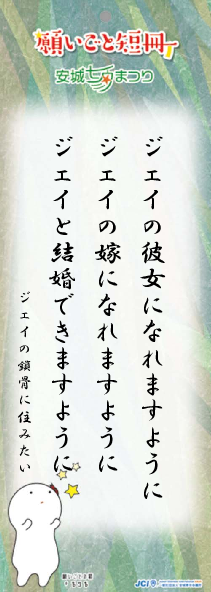 願いごと短冊
安城七夕まつり
ジェイの彼女になれますように
ジェイの嫁になれますように
ジェイと結婚できますように
ジェイの鎖骨に住みたい
JCI